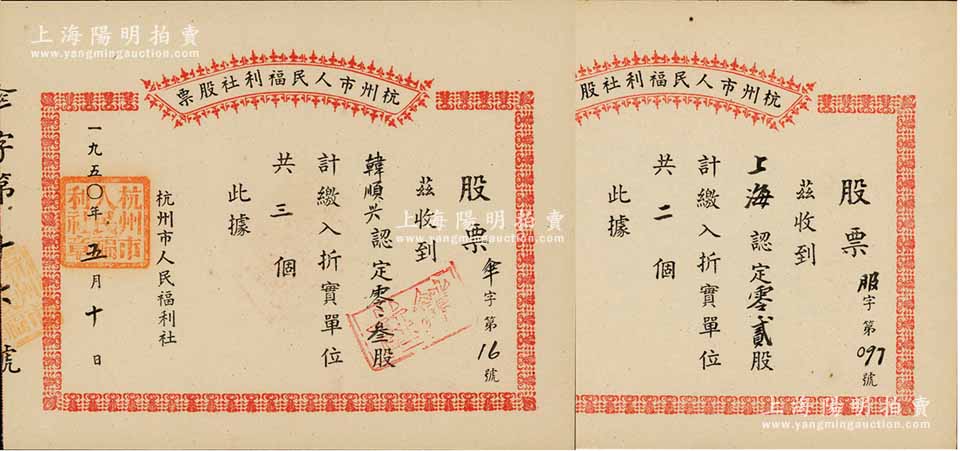 上海陽明拍賣
www.yangmingauction.com
杭州市人民福利社股票
股票
傘字第16號
茲收到
韓順興認定零叁股
計繳入折實單位
共三個
此據
杭州市人民福利社
一九五〇年五月十日
杭州市人民福利社章
字第十六號
上海陽明拍賣
www.yangmingauction.com
杭州市人民福利社股
股票
服字第097號
茲收到
上海認定零貳股
計繳入折實單位
共二個
此據
上海陽明拍賣
www.yangmingauction.com